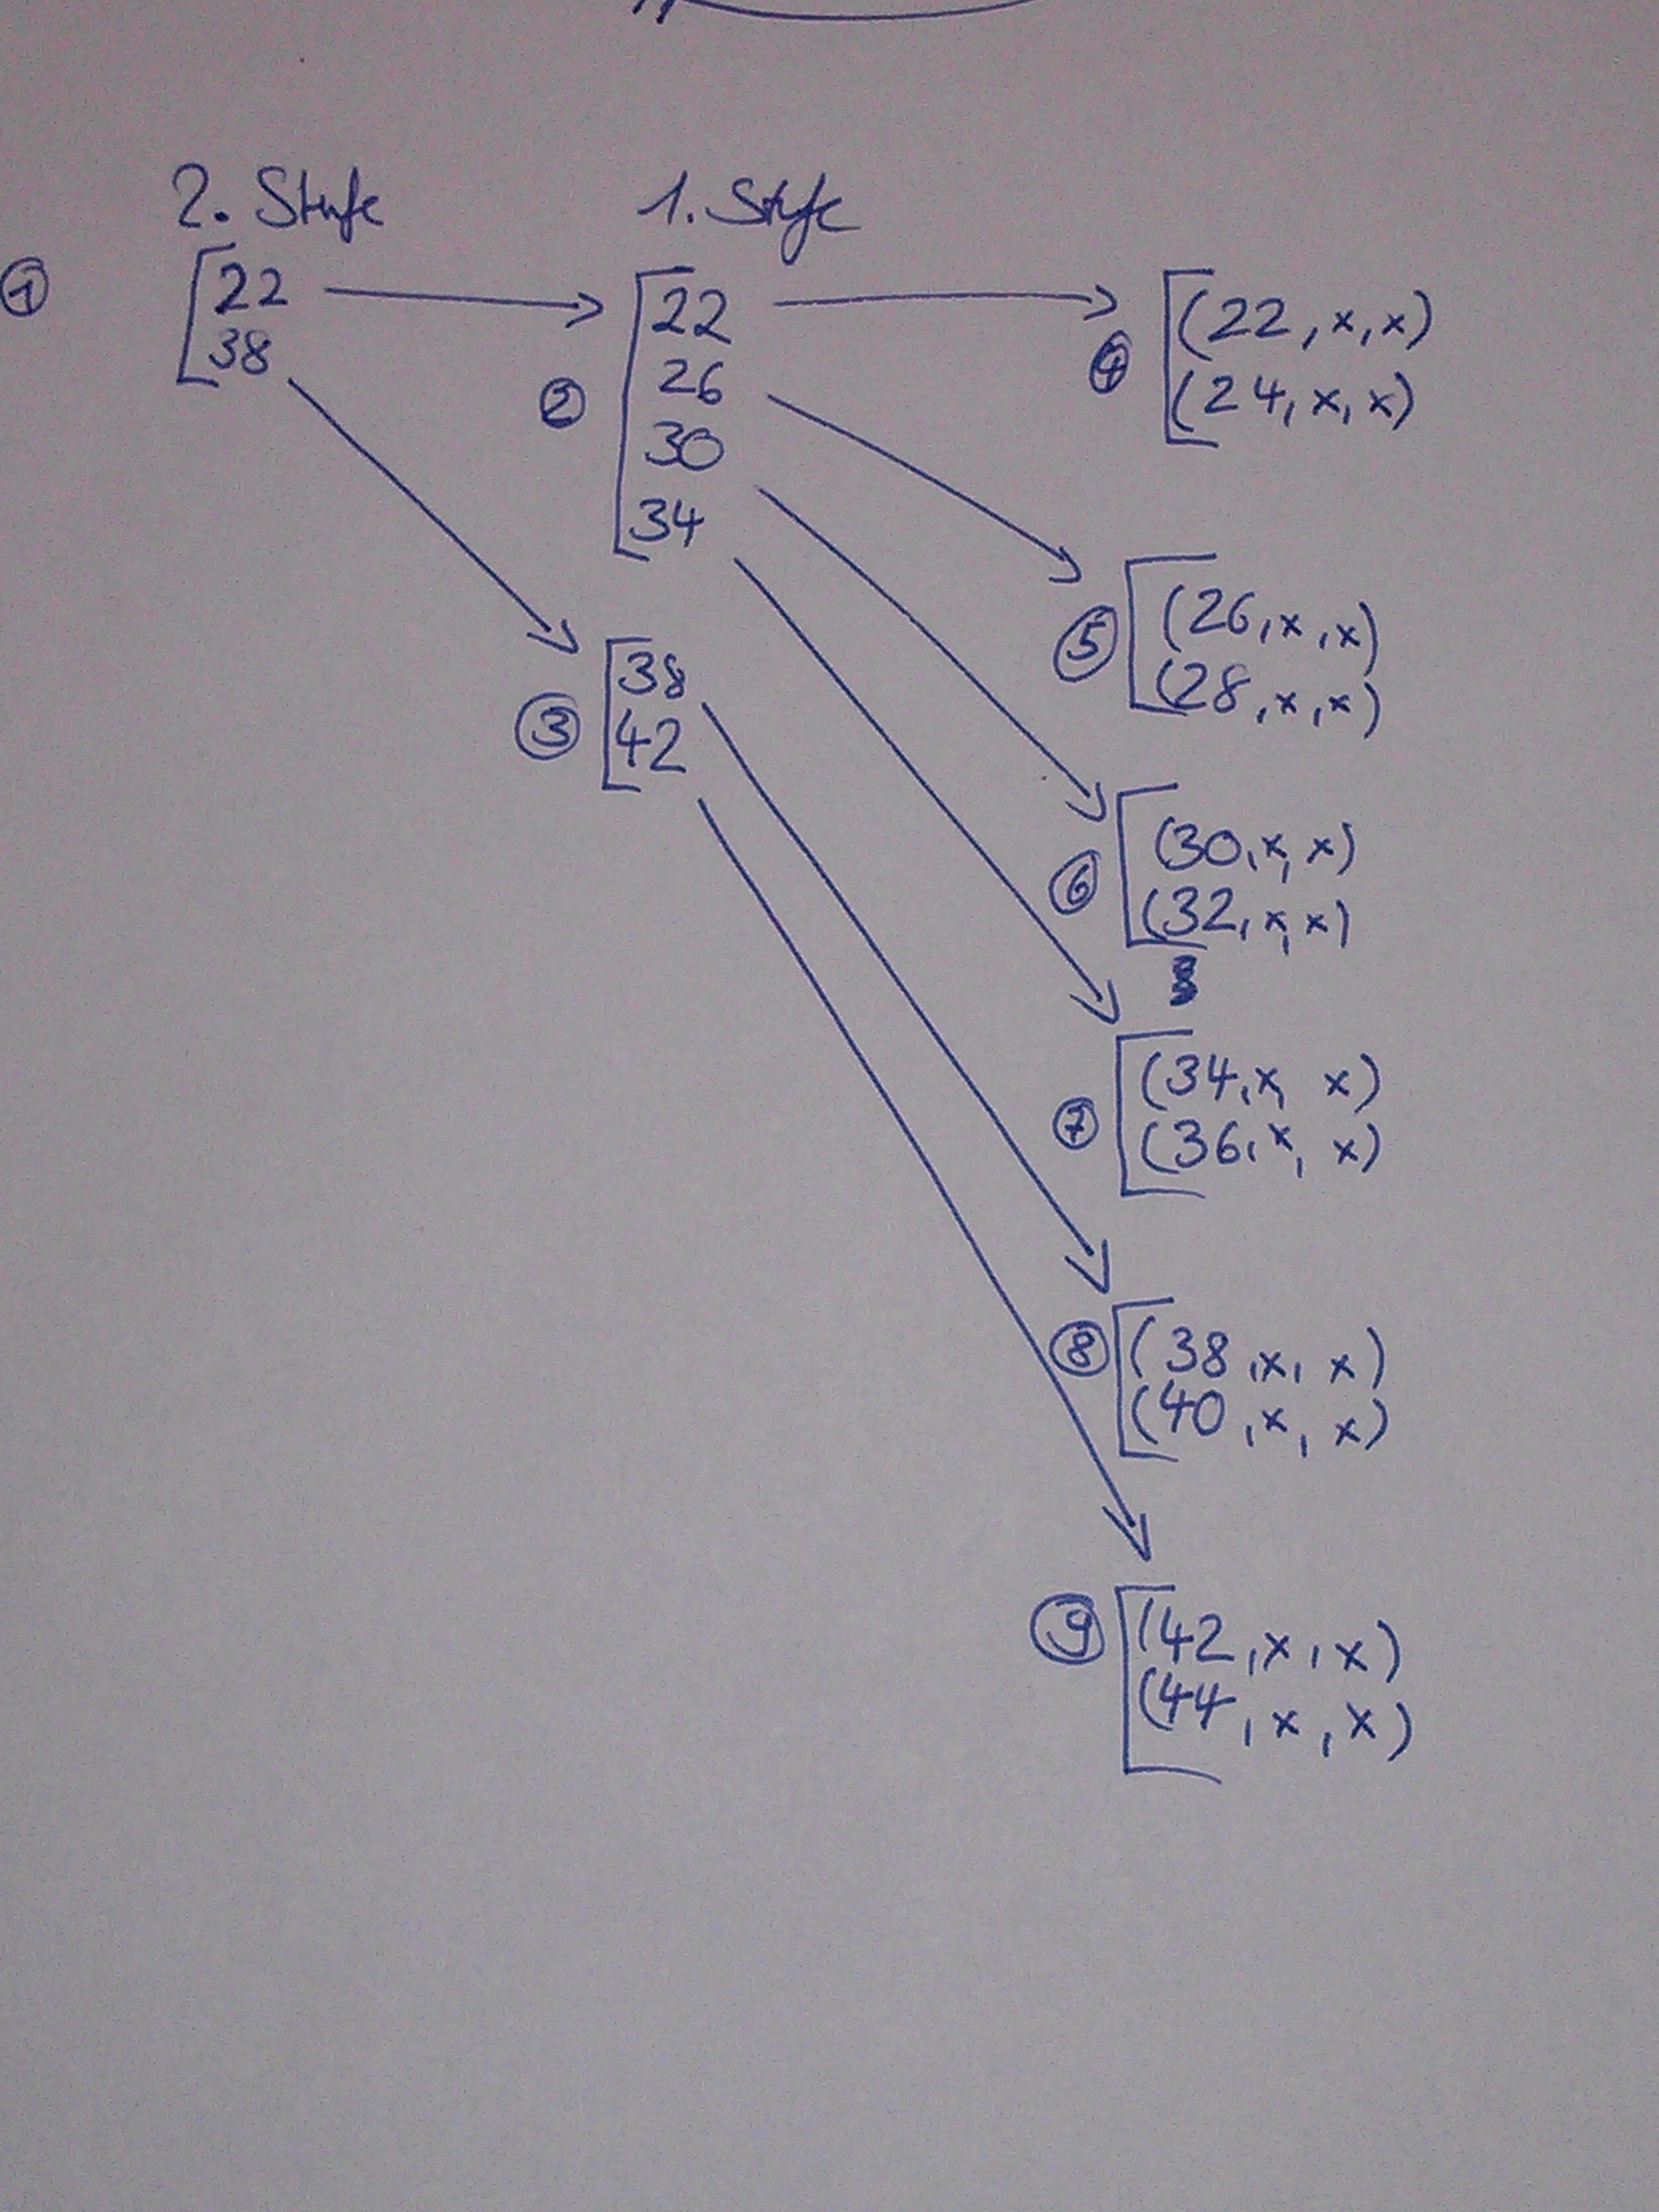 2. Stufe
1. Stufe
① 22
38
② 22
26
30
34
③ 38
42
④ (22, x, x)
(24, x, x)
⑤ (26, x, x)
(28, x, x)
⑥ (30, x, x)
(32, x, x)
⑦ (34, x, x)
(36, x, x)
⑧ (38, x, x)
(40, x, x)
⑨ (42, x, x)
(44, x, x)